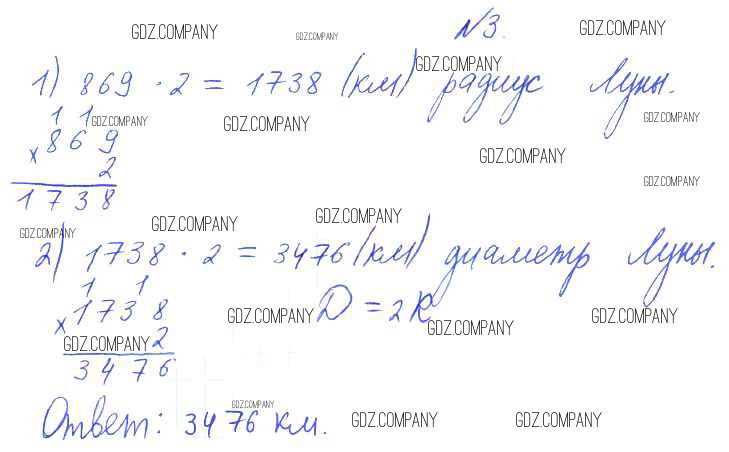 GDZ.COMPANY GDZ.COMPANY №3. GDZ.COMPANY
1) 869 · 2 = 1738 (км) радиус Луны.
GDZ.COMPANY
1 1 GDZ.COMPANY GDZ.COMPANY GDZ.COMPANY
x 869
2 GDZ.COMPANY
GDZ.COMPANY
1738
GDZ.COMPANY GDZ.COMPANY GDZ.COMPANY
2) 1738 · 2 = 3476 (км) диаметр Луны.
1 1
x 1738 GDZ.COMPANY D = 2R GDZ.COMPANY GDZ.COMPANY
GDZ.COMPANY 2
3476
GDZ.COMPANY
Ответ: 3476 км. GDZ.COMPANY GDZ.COMPANY